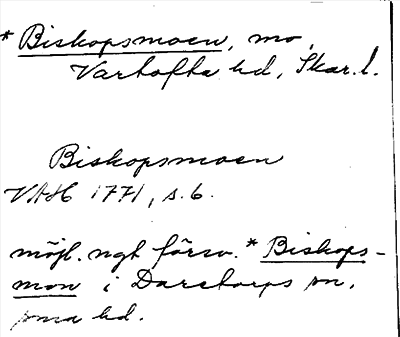 * Biskopsmoen, mo,
Vartofta hd, Skar. l.
Biskopsmoen
VAH 1771, s. 6.
möjl. ngt försv. * Biskops-
mon i Daretorps sn,
sma hd.